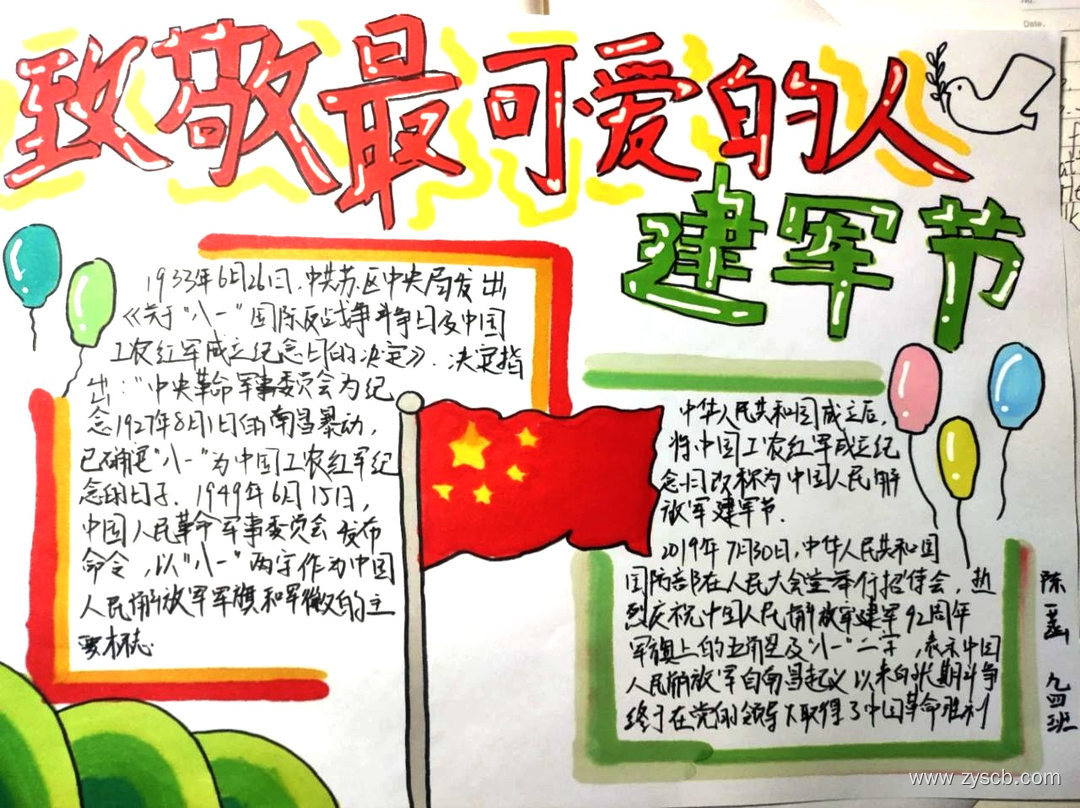 致敬最可爱的人
建军节
1933年6月26日,中共苏区中央局发出
《关于"八一"国际反战争斗争日及中国
工农红军成立纪念日的决定》.决定指
出:"中央革命军事委员会为纪
念1927年8月1日的南昌暴动,
已确定"八一"为中国工农红军纪
念的日子.1949年6月15日,
中国人民革命军事委员会发布
命令,以"八一"两字作为中国
人民解放军军旗和军徽的主
要标志
中华人民共和国成立后,
将中国工农红军成立纪
念日改称为中国人民解
放军建军节.
2019年7月30日,中华人民共和国
国防部在人民大会堂举行招待会,热
烈庆祝中国人民解放军建军92周年
军旗上的五角星及"八一"二字,表示中国
人民解放军自南昌起义以来向长期斗争
终于在党的领导下取得了中国革命胜利
陈 九四班
Date.
www.zyscb.com